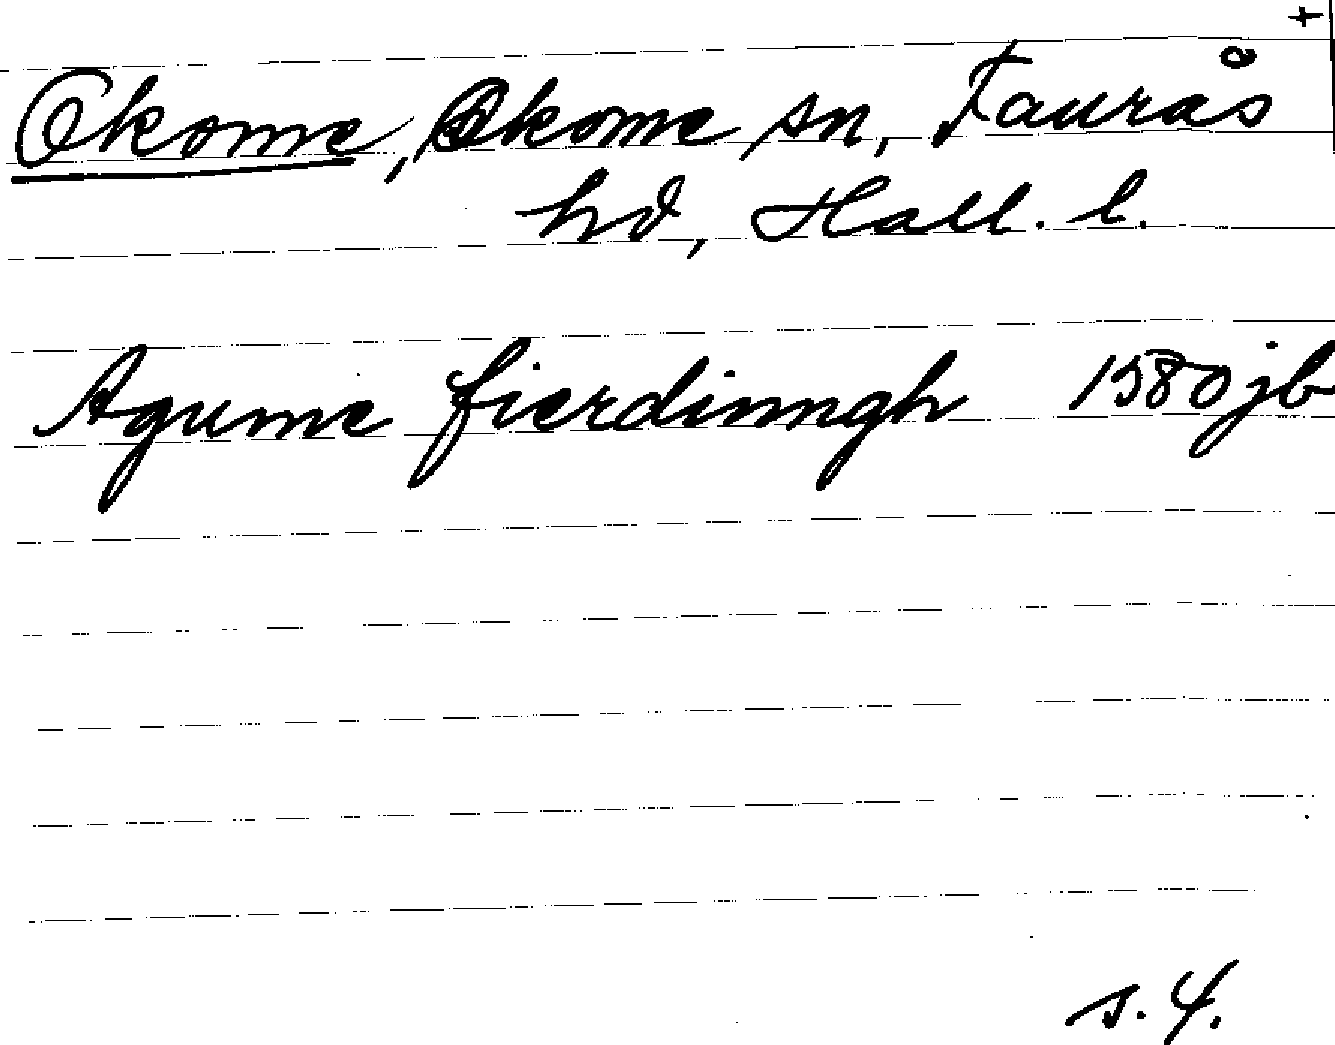 +
Okome, Okome sn, Faurås
hd, Hall. l.
Agume fierdinngh 1580 jb
s. 4.